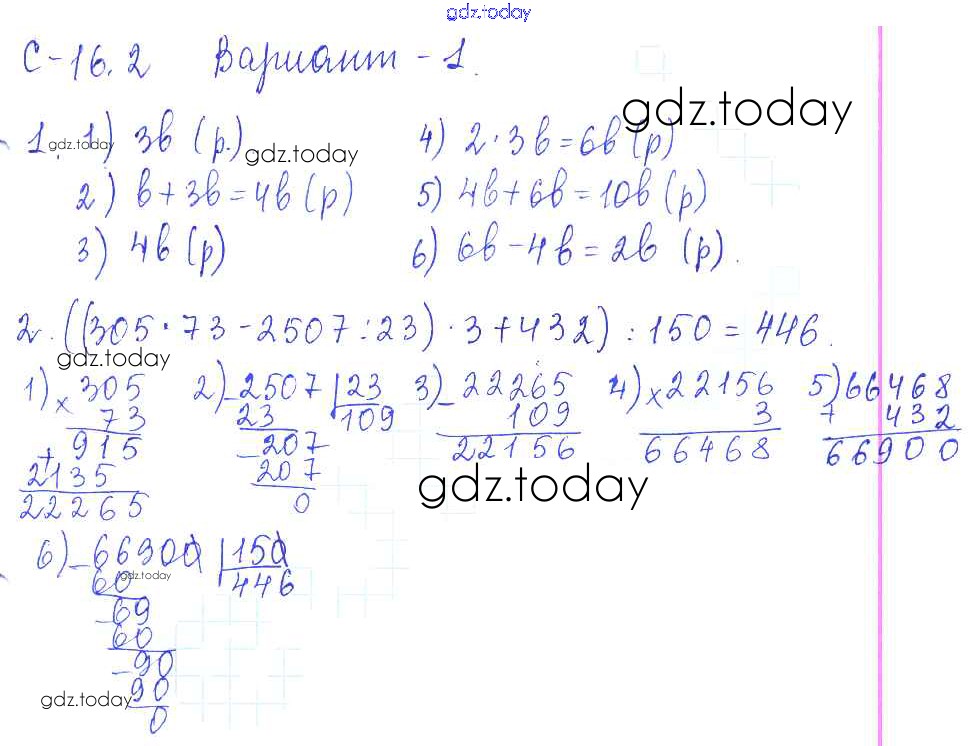 gdz.today
С-16.2 Вариант - 1.
gdz.today
1. 1) 3b (р.) 4) 2·3b=6b (р)
gdz.today gdz.today
2) b+3b=4b (р) 5) 4b+6b=10b (р)
3) 4b (р) 6) 6b-4b=2b (р).
2. ((305·73-2507:23)·3+432):150=446.
gdz.today
1) × 305 2) - 2507 | 23 3) - 22265 4) × 22156 5) 66468
73 23 109 109 3 + 432
915 - 207 22156 66468 66900
+ 2135 207 gdz.today
22265 0
6) - 66900 | 150
60 446
gdz.today
- 69
60
- 90
90
gdz.today
0